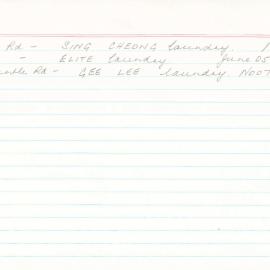 Rd - SING CHEONG laundry. 1
- ELITE laundry June 05
Rd - GEE LEE laundry. NOOT